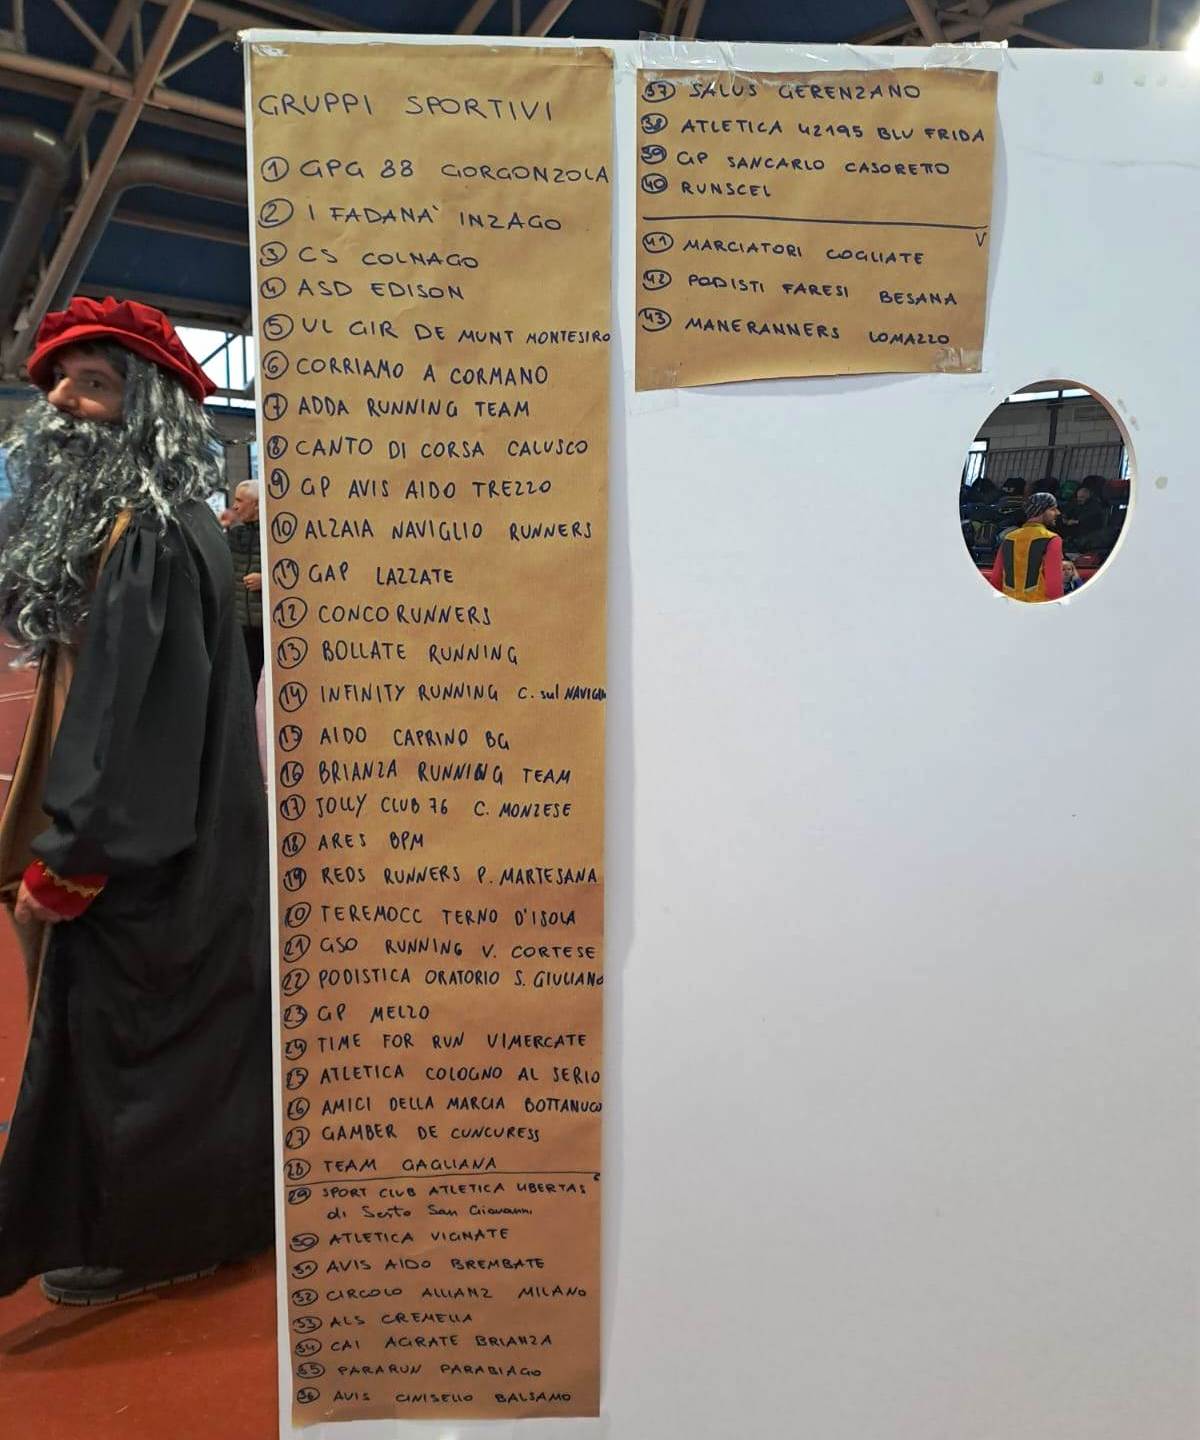 GRUPPI SPORTIVI
1 GPG 88 GORGONZOLA
2 I FADANA' INZAGO
3 CS COLNAGO
4 ASD EDISON
5 UL GIR DE MUNT MONTESIRO
6 CORRIAMO A CORMANO
7 ADDA RUNNING TEAM
8 CANTO DI CORSA CALUSCO
9 GP AVIS AIDO TREZZO
10 ALZAIA NAVIGLIO RUNNERS
11 GAP LAZZATE
12 CONCORUNNERS
13 BOLLATE RUNNING
14 INFINITY RUNNING C. sul NAVIGLIO
15 AIDO CAPRINO BG
16 BRIANZA RUNNING TEAM
17 JOLLY CLUB 76 C. MONZESE
18 ARES BPM
19 REDS RUNNERS P. MARTESANA
20 TEREMOCC TERNO D'ISOLA
21 GSO RUNNING V. CORTESE
22 PODISTICA ORATORIO S. GIULIANO
23 GP MELZO
24 TIME FOR RUN VIMERCATE
25 ATLETICA COLOGNO AL SERIO
26 AMICI DELLA MARCIA BOTTANUCO
27 GAMBER DE CUNCURESS
28 TEAM GAGLIANA
29 SPORT CLUB ATLETICA LIBERTAS
di Sesto San Giovanni
30 ATLETICA VIGNATE
31 AVIS AIDO BREMBATE
32 CIRCOLO ALLIANZ MILANO
33 ALS CREMELLA
34 CAI AGRATE BRIANZA
35 PARARUN PARABIAGO
36 AVIS CINISELLO BALSAMO
37 SALUS GERENZANO
38 ATLETICA 42195 BLU FRIDA
39 GP SANCARLO CASORETTO
40 RUNSCEL
V
41 MARCIATORI COGLIATE
42 PODISTI FARESI BESANA
43 MANERANNERS LOMAZZO